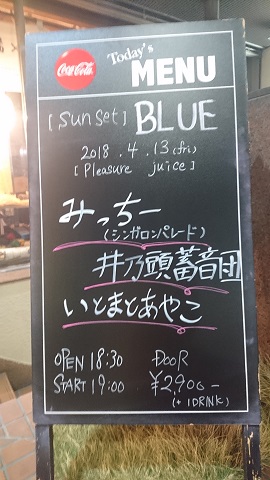 Coca-Cola
Today's
MENU
[sunset] BLUE
2018.4.13(fri)
[Pleasure juice]
みっちー
(シンガロンパレード)
井乃頭蓄音団
いとまとあやこ
OPEN 18:30
START 19:00
DooR
¥2900-
(+1DRINK)